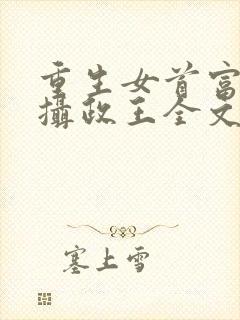 重生女首富
攝政王全文
塞上雪